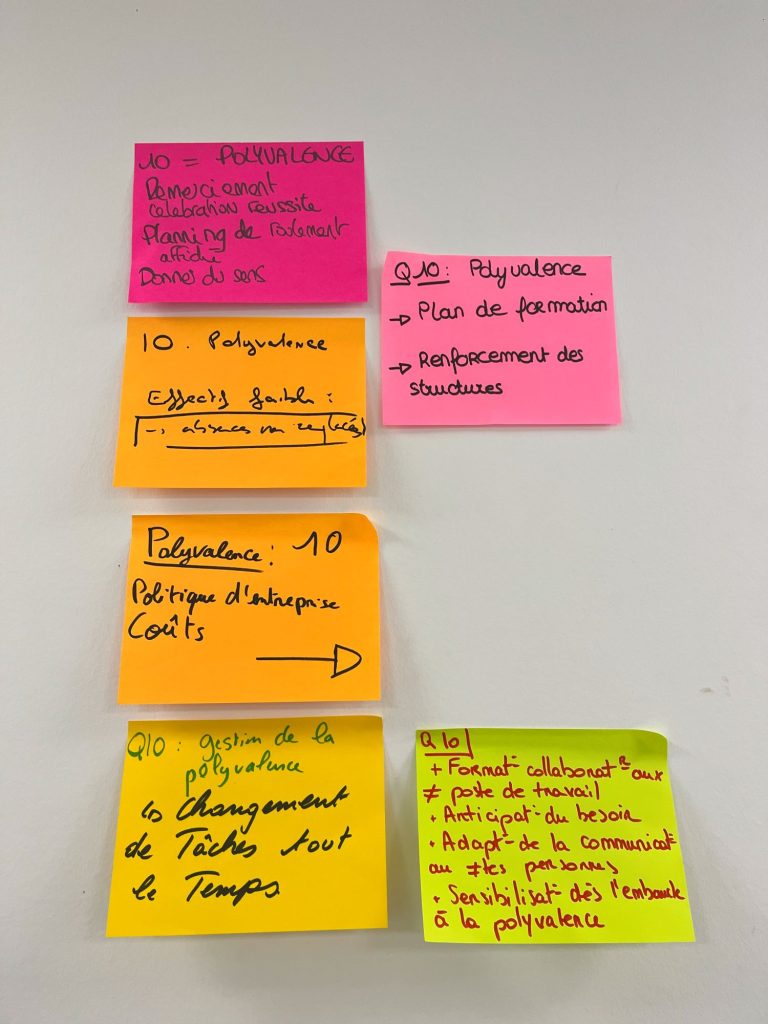 10 = POLYVALENCE
Remerciement
celebration reussite
Planning de roulement
affiché
Donner du sens
Q10 : Polyvalence
→ Plan de formation
→ Renforcement des
structures
10 . Polyvalence
Effectif faible :
→ absences non remplacées
Polyvalence : 10
Politique d'entreprise
Coûts
→
Q10 : gestion de la
polyvalence
↳ changement
de Tâches tout
le Temps
Q10
+ Format° collaborat^R aux
≠ poste de travail
+ Anticipat° du besoin
+ Adapt° de la communicat°
au ≠tes personnes
+ Sensibilisat° dès l'embauche
à la polyvalence